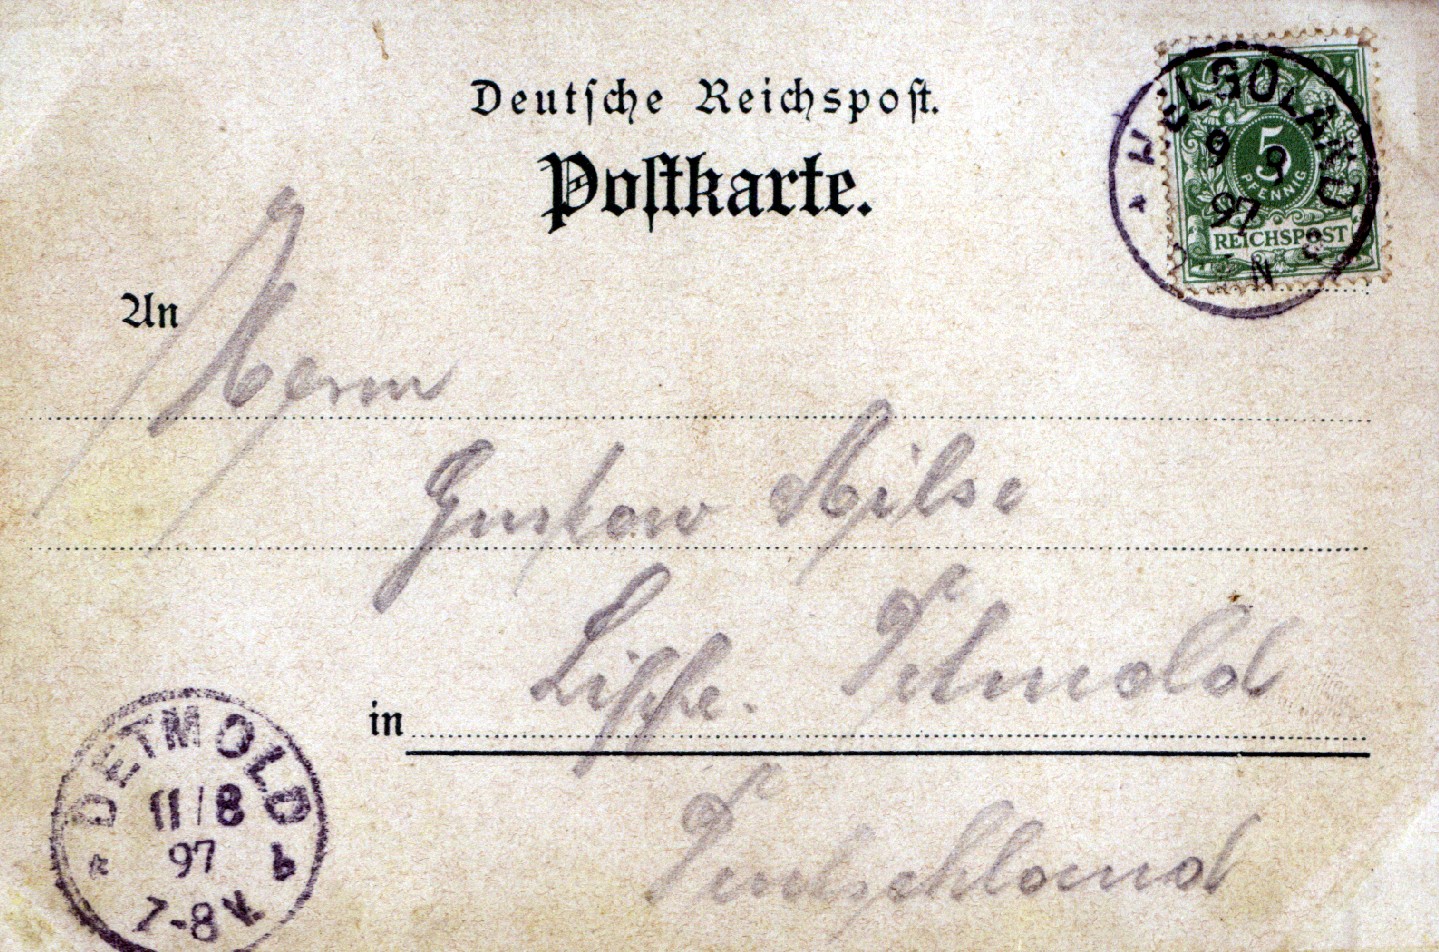 Deutsche Reichspost.
Postkarte.
HELGOLAND
9 8
97
N
5
PFENNIG
REICHSPOST
An Herrn
Gustav Hilse
in Lippe. Detmold
Deutschland
DETMOLD
11/8
97
b
7-8 V.